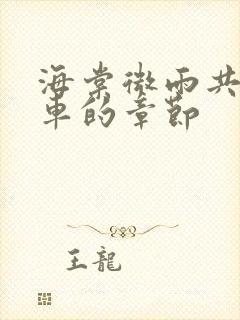 海棠微雨共
車的章節
王龍